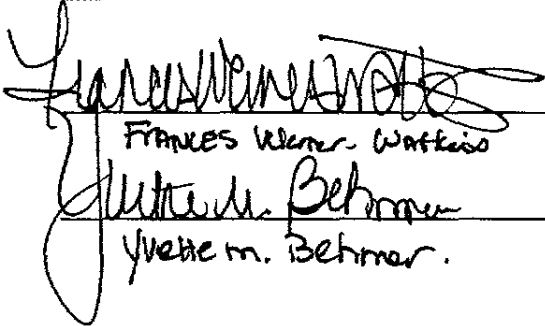 Frances Werner-Watkins
FRANCES Werner-Watkins
Yvette M. Behmer
Yvette m. Behmer.